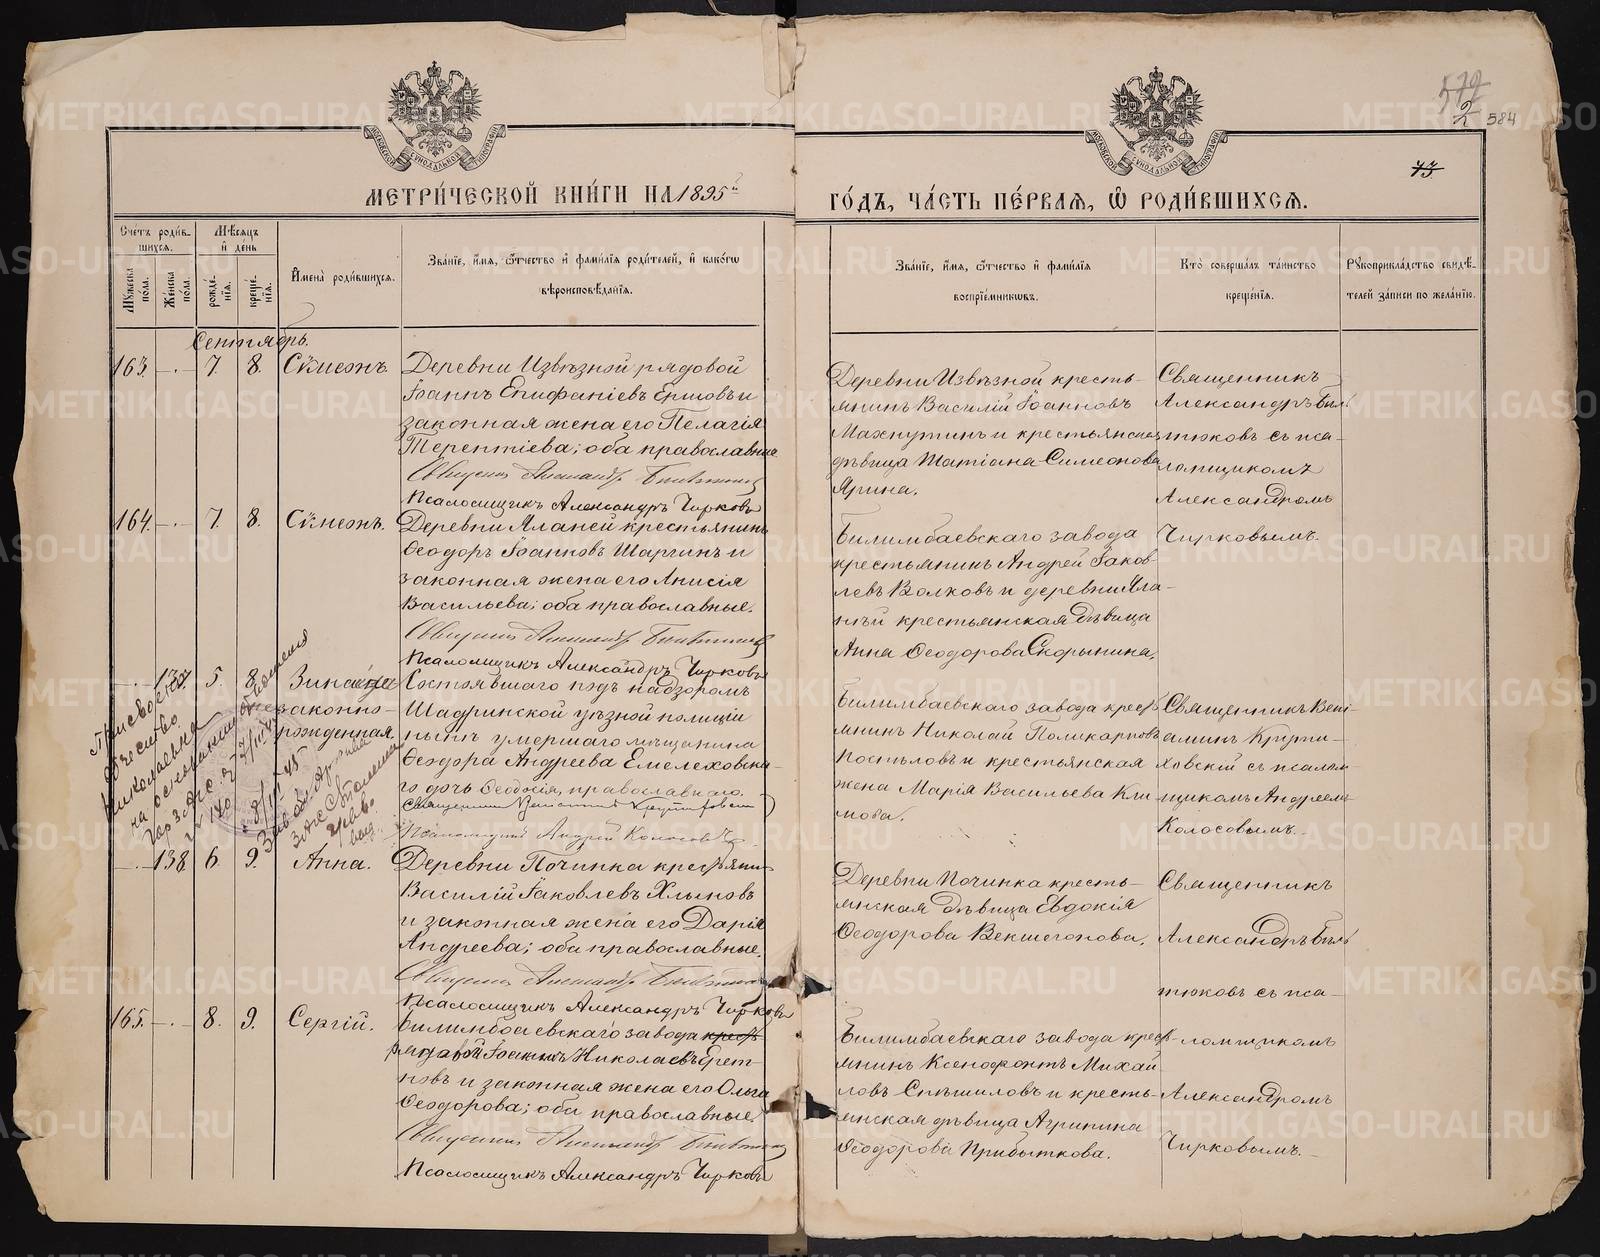 МЕТРИ́ЧЕСКОЙ КНИ́ГИ НА 1895й
ГО́ДЪ, ЧА́СТЬ ПЕ́РВАЯ, Ѡ РОДИ́ВШИХСЯ.
572
2
584
73
МОСКОВСКОЙ СѴНОДАЛЬНОЙ ТИПОГРАФІИ
МОСКОВСКОЙ СѴНОДАЛЬНОЙ ТИПОГРАФІИ
Сче́тъ роди́в-
шихся.
Мѣ́сяцъ
и де́нь
Мꙋ́жеска по́ла.
Же́нска по́ла.
рожде́нїѧ.
креще́нїѧ.
И҆мена̀ роди́вшихся.
Зва́нїе, и҆́мѧ, ѻ҆́тчество и҆ фами́лїѧ роди́телей, и҆ како́гѡ
вѣроисповѣ́данїѧ.
Зва́нїе, и҆́мѧ, ѻ҆́тчество и҆ фами́лїѧ
воспрїе́мникѡвъ.
Кто̀ соверша́лъ та́инство
креще́нїѧ.
Рꙋкоприкла́дство свидѣ́-
телей за́писи по жела́нїю.
Сентябрь.
163. — 7. 8. Сѵмеонъ.
Деревни Извѣзной рядовой
Іоаннъ Епифаніевъ Ершовъ и
законная жена его Пелагія
Терентіева; оба православные
Священникъ Александръ
Псаломщикъ Александръ Чирковъ
Деревни Извѣзной кресть-
янинъ Василій Іоанновъ
Махнутинъ и крестьянская
дѣвица Татіана Симеонова
Ярина.
Священникъ
Александръ Бил
тюковъ съ пса-
ломщикомъ
Александромъ
Чирковымъ.
164. — 7. 8. Сѵмеонъ.
Деревни Яланей крестьянинъ
Ѳеодоръ Іоанновъ Шаргинъ и
законная жена его Анисія
Васильева; оба православные.
Священникъ Александръ
Псаломщикъ Александръ Чирковъ
Билимбаевскаго завода
крестьянинъ Андрей Іаков-
левъ Волковъ и деревни Яла-
ней крестьянская дѣвица
Анна Ѳеодорова Скорынина.
— 137 5. 8. Зинаида
законно-
рожденная
Состоявшаго подъ надзоромъ
Шадринской уѣзной полиціи
нынѣ умершаго мѣщанина
Ѳеодора Андреева Емелеховска-
го дочь Ѳеодосія, православнаго.
Священникъ Веніаминъ Крутиховскій
Псаломщикъ Андрей Колосовъ
Билимбаевскаго завода крест
янинъ Николай Поликарповъ
Постыловъ и крестьянская
жена Марія Васильева Кли-
мова.
Священникъ Вені
аминъ Крути-
ховскій съ псалом
щикомъ Андреемъ
Колосовымъ.
Присвоено
отчество
Николаевна
на основании
— 138 6. 9. Анна.
Деревни Починка крестьянинъ
Василій Іаковлевъ Хлыновъ
и законная жена его Дарія
Андреева; оба православные.
Священникъ Александръ
Псаломщикъ Александръ Чирковъ
Деревни Починка кресть-
янская дѣвица Евдокія
Ѳеодорова Векшегонова.
Священникъ
Александръ Бил
тюковъ съ пса-
ломщикомъ
Александромъ
Чирковымъ.
165. — 8. 9. Сергій.
Билимбаевскаго завода крест
рядовой Іоаннъ Николаевъ Брет-
новъ и законная жена его Ольга
Ѳеодорова; оба православные.
Священникъ Александръ
Псаломщикъ Александръ Чирковъ
Билимбаевскаго завода крест-
янинъ Ксенофонтъ Михай
ловъ Спѣшиловъ и кресть-
янская дѣвица Агрипина
Ѳеодорова Прибыткова.
METRIKI.GASO-URAL.RU